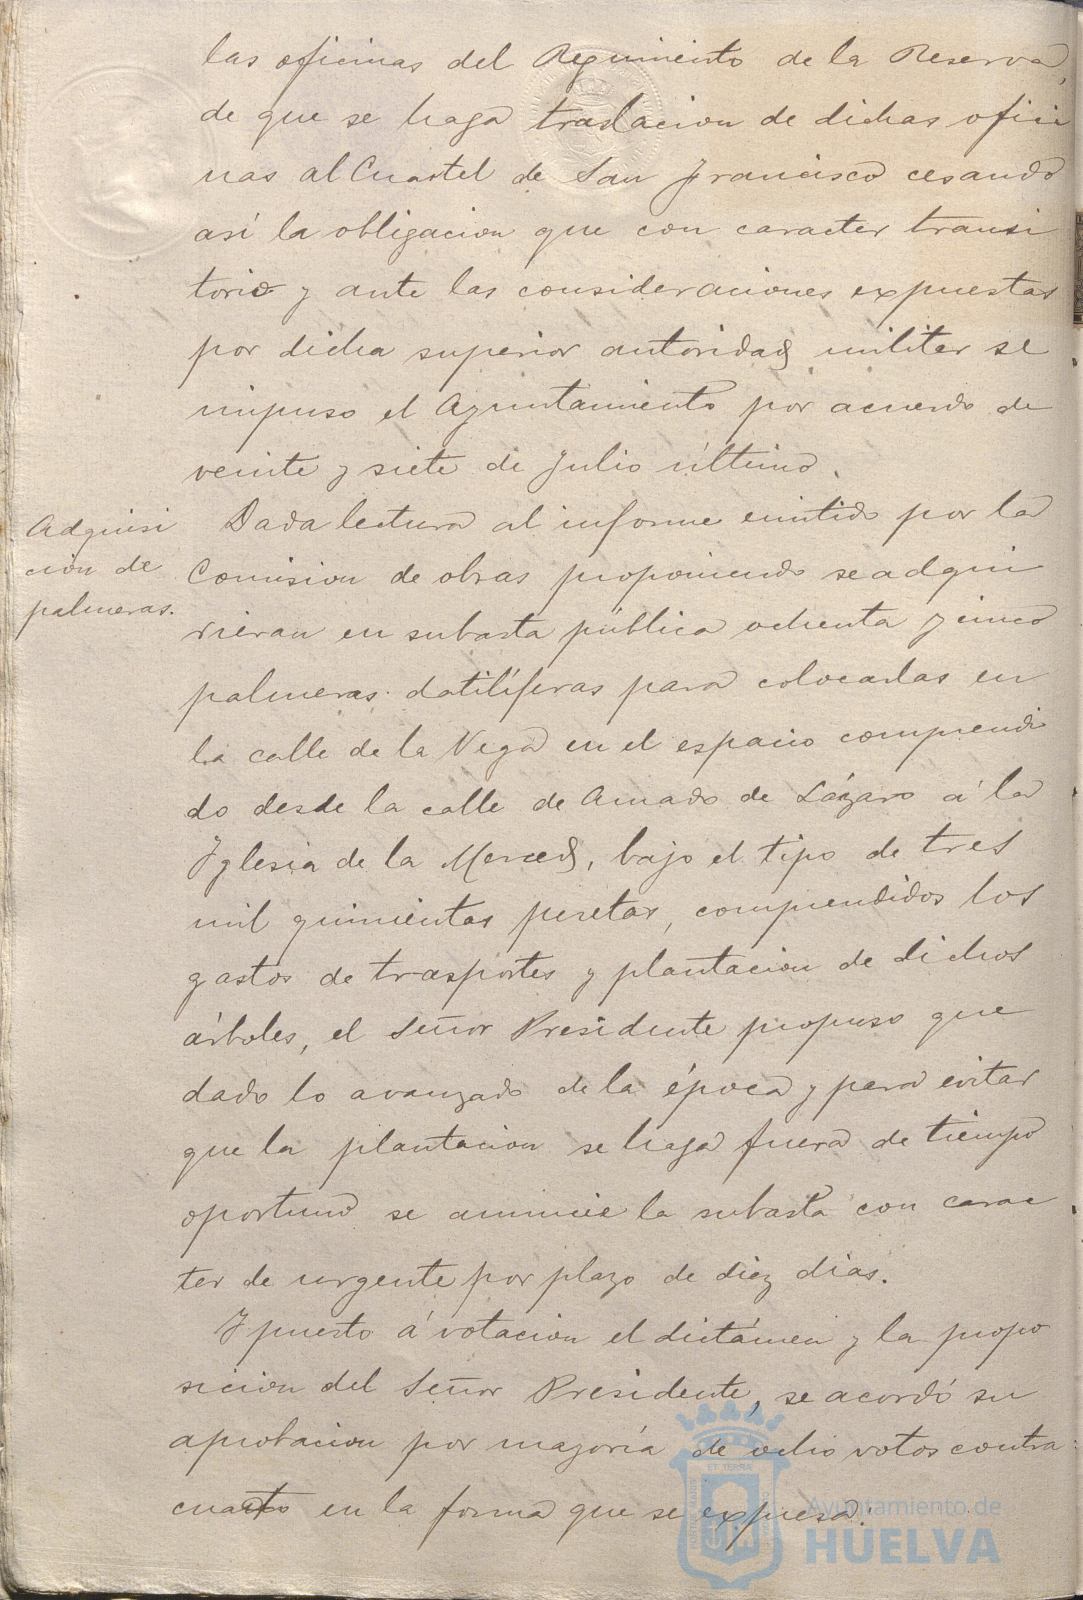 las oficinas del Regimiento de la Reserva,
de que se haga traslacion de dichas ofici
nas al Cuartel de San Francisco cesando
así la obligacion que con caracter transi
torio y ante las consideraciones expuestas
por dicha superior autoridad militar se
impuso el Ayuntamiento por acuerdo de
veinte y siete de Julio último.
Adquisi
cion de
palmeras.
Dada lectura al informe emitido por la
Comision de obras proponiendo se adqui
rieran en subasta pública ochenta y cinco
palmeras datilíferas para colocarlas en
la calle de la Vega en el espacio comprendi
do desde la calle de Amado de Lázaro á la
Iglesia de la Merced, bajo el tipo de tres
mil quinientas pesetas, comprendidos los
gastos de trasportes y plantacion de dichos
árboles, el Señor Presidente propuso que
dado lo avanzado de la época y para evitar
que la plantacion se haga fuera de tiempo
oportuno se anuncie la subasta con carac
ter de urgente por plazo de diez dias.
Y puesto á votacion el dictámen y la propo
sicion del Señor Presidente, se acordó su
aprobacion por mayoría de ocho votos contra
cuatro en la forma que se expresa:
ET TERRA
Ayuntamiento de
HUELVA